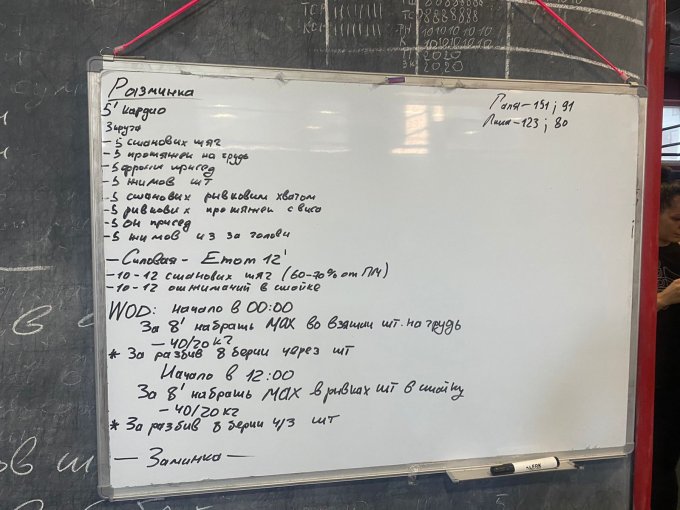 Разминка
5' кардио
3 круга
- 5 становых тяг
- 5 протяжек на грудь
- 5 фронт присед
- 5 жимов шт
- 5 становых рывковым хватом
- 5 рывковых протяжек с виса
- 5 он присед
- 5 жимов из за головы
- Силовая - Emom 12'
- 10-12 становых тяг (60-70% от ПМ)
- 10-12 отжиманий в стойке
WOD: начало в 00:00
За 8' набрать MAX во взятии шт. на грудь
- 40/20 кг
* За разбив 8 берпи через шт
Начало в 12:00
За 8' набрать MAX в рывках шт в стойку
- 40/20 кг
* За разбив 8 берпи ч/з шт
- Заминка -
Галя - 151; 91
Лиля - 123; 80